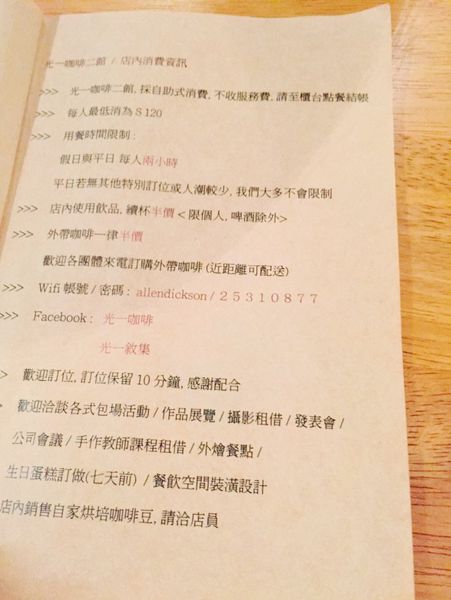 光一咖啡二館 / 店內消費資訊
>>> 光一咖啡二館, 採自助式消費, 不收服務費, 請至櫃台點餐結帳
>>> 每人最低消為 $ 120
>>> 用餐時間限制 :
假日與平日 每人兩小時
平日若無其他特別訂位或人潮較少, 我們大多不會限制
>>> 店內使用飲品, 續杯半價 < 限個人, 啤酒除外>
>>> 外帶咖啡一律半價
歡迎各團體來電訂購外帶咖啡 (近距離可配送)
>>> Wifi 帳號 / 密碼 : allendickson / 2 5 3 1 0 8 7 7
>>> Facebook : 光一咖啡
光一敘集
> 歡迎訂位, 訂位保留 10 分鐘, 感謝配合
> 歡迎洽談各式包場活動 / 作品展覽 / 攝影租借 / 發表會 /
公司會議 / 手作教師課程租借 / 外燴餐點 /
生日蛋糕訂做(七天前) / 餐飲空間裝潢設計
店內銷售自家烘培咖啡豆, 請洽店員